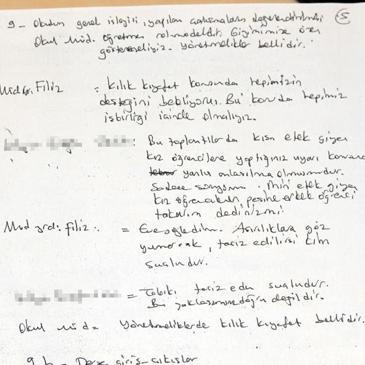 9 - Okulun genel işleyişi, yapılan çalışmaların değerlendirilmesi 5
Okul Müd. öğretmen rol modeldir. Giyimimize özen
göstermeliyiz. Yönetmelikler bellidir.
Müd. yrd. Filiz = Kılık kıyafet konusunda hepimizin
desteğini bekliyoruz. Bu konuda hepimiz
işbirliği içinde olmalıyız.
: Bu toplantılarda kısa etek giyen
kız öğrencilere yaptığınız uyarı konusu
yanlış anlaşılma olmuşmudur.
Sadece soruyorum. Mini etek giyen
kız öğrencilerin peşine erkek öğrenci
takarım dedinizmi
Müd yrd. Filiz = Evet söyledim. Aşırılıklara göz
yumarak, taciz edilirse kim
suçludur.
= Tabiki taciz eden suçludur.
Bu yaklaşımınız doğru değildir.
Okul Müd = Yönetmeliklerde kılık kıyafet bellidir.
9.b - Derse giriş-çıkışlar